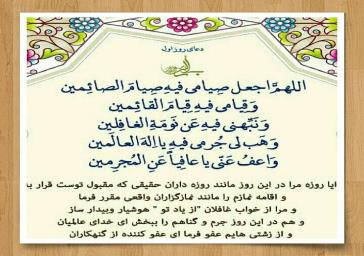 دعای روز اول
اللهمَّ اجعل صِيامی فيهِ صِيامَ الصائِمين
وَقِيامی فيهِ قِيامَ القائِمين
وَنَبِّهنی فيهِ عَن نَومَةِ الغافِلين
وَهَب لی جُرمی فيهِ يا اِلهَ العالَمين
وَاعفُ عَنّی يا عافِياً عَنِ المُجرِمين
ایا روزه مرا در این روز مانند روزه داران حقیقی که مقبول توست قرار
و اقامه نمازم را مانند نمازگزاران واقعی مقرر فرما
و مرا از خواب غافلان "از یاد تو " هوشیار وبیدار ساز
و هم در این روز جرم و گناهم را ببخش ای خدای عالمیان
و از زشتی هایم عفو فرما ای عفو کننده از گنهکاران